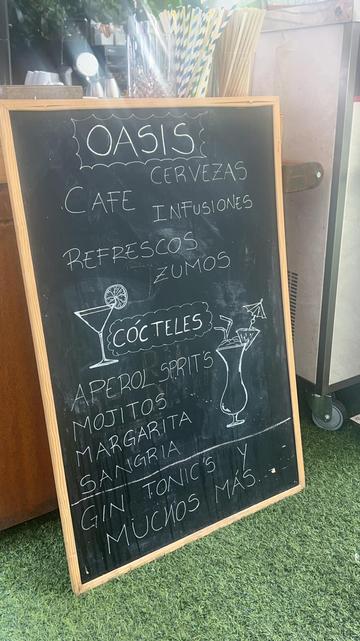 OASIS
CERVEZAS
CAFE
INFUSIONES
REFRESCOS
ZUMOS
COCTELES
APEROL SPRIT'S
MOJITOS
MARGARITA
SANGRIA
GIN TONIC'S Y
MUCHOS MÁS...